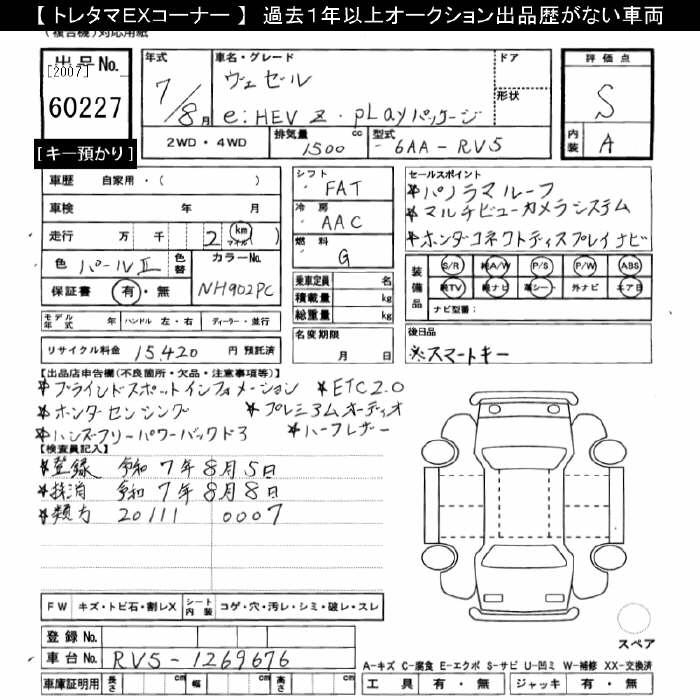 【 トレタマEXコーナー 】 過去１年以上オークション出品歴がない車両
(複合機)対応用紙
出品No.
[2007]
60227
[キー預かり]
年式
7/8月
車名・グレード
ヴェゼル
e:HEV Z・PLayパッケージ
ドア
形状
評価点
S
内装 A
2WD・4WD
排気量 1500 cc
型式 6AA-RV5
車歴 自家用・( )
車検 年 月
走行 万 千 2 km マイル ( )
色 パールⅡ 色替
カラーNo. NH902PC
保証書 有・無
モデル年式 年 ハンドル 左・右 ディーラー・並行
リサイクル料金 15,420 円 預託済
シフト FAT
冷房 AAC
燃料 G
乗車定員 名
積載量 kg
総重量 kg
名変期限
月 日
セールスポイント
☆パノラマルーフ
☆マルチビューカメラシステム
☆ホンダコネクトディスプレイナビ
装備品
S/R 純A/W P/S P/W ABS
純TV 純ナビ 革シート 外ナビ エアB
ナビ型番:
後日品
※スマートキー
【出品店申告欄(不良箇所・欠品・注意事項等)】
☆ブラインドスポットインフォメーション ☆ETC2.0
☆ホンダセンシング ☆プレミアムオーディオ
☆ハンズフリーパワーバックドア ☆ハーフレザー
【検査員記入】
☆登録 令和7年8月5日
☆抹消 令和7年8月8日
☆類方 20111 0007
FW キズ・トビ石・割レX シート内装 コゲ・穴・汚レ・シミ・破レ・スレ
登録No.
車台No. RV5-1269676
車庫証明用 長さ cm 幅 cm 高さ cm
スペア
A-キズ C-腐食 E-エクボ S-サビ U-凹ミ W-補修 XX-交換済
工具 有・無 ジャッキ 有・無